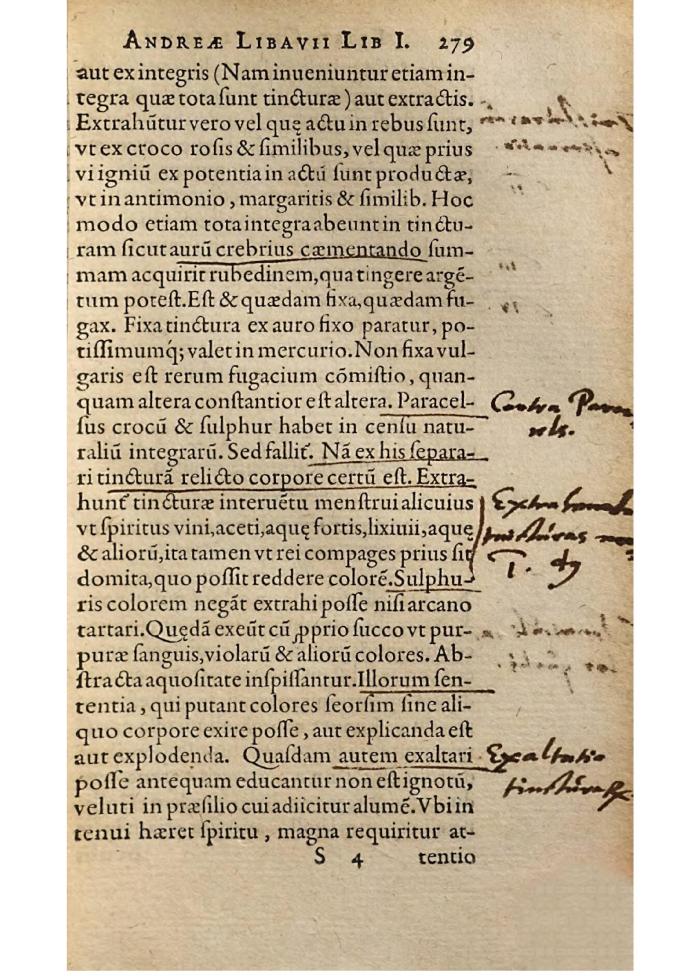 ANDREÆ LIBAVII LIB I. 279
aut ex integris (Nam inueniuntur etiam in-
tegra quæ tota sunt tincturæ) aut extractis.
Extrahūtur vero vel quę actu in rebus sunt,
vt ex croco rosis & similibus, vel quæ prius
vi igniū ex potentia in actū sunt productæ,
vt in antimonio, margaritis & similib. Hoc
modo etiam tota integra abeunt in tinctu-
ram sicut aurū crebrius cæmentando sum-
mam acquirit rubedinem, qua tingere argē-
tum potest. Est & quædam fixa, quædam fu-
gax. Fixa tinctura ex auro fixo paratur, po-
tissimumq́; valet in mercurio. Non fixa vul-
garis est rerum fugacium cōmistio, quan-
quam altera constantior est altera. Paracel-
sus crocū & sulphur habet in censu natu-
raliū integrarū. Sed fallit᷒. Nā ex his separa-
ri tincturā relicto corpore certū est. Extra-
hunt᷒ tincturæ interuētu menstrui alicuius
vt spiritus vini, aceti, aquę fortis, lixiuii, aquę
& aliorū, ita tamen vt rei compages prius sit
domita, quo possit reddere colorē. Sulphu-
ris colorem negāt extrahi posse nisi arcano
tartari. Quędā exeūt cū ꝓprio succo vt pur-
puræ sanguis, violarū & aliorū colores. Ab-
stracta aquositate inspissantur. Illorum sen-
tentia, qui putant colores seorsim sine ali-
quo corpore exire posse, aut explicanda est
aut explodenda. Quasdam autem exaltari
posse antequam educantur non est ignotū,
veluti in præsilio cui adiicitur alumē. Vbi in
tenui hæret spiritu, magna requiritur at-
S 4 tentio
Contra Para
cels.
tincturas
Exaltatio
tincturæ